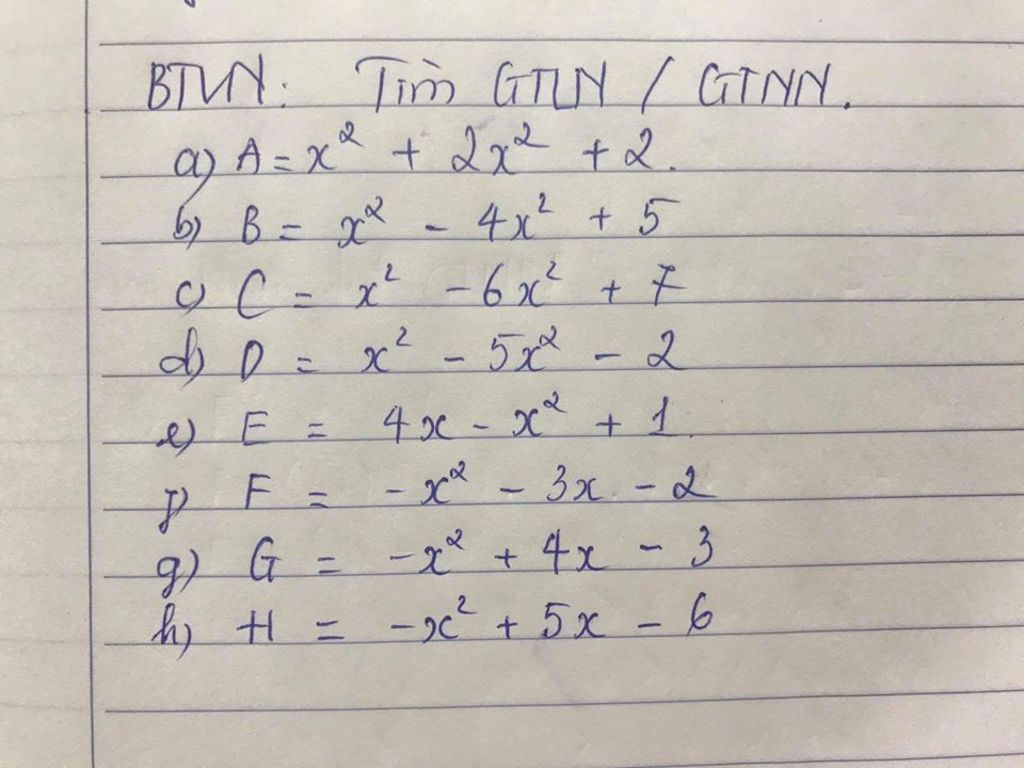 BTVN: Tìm GTLN / GTNN.
a) A = x² + 2x² + 2.
b) B = x² - 4x² + 5
c) C = x² - 6x² + 7
d) D = x² - 5x² - 2
e) E = 4x - x² + 1.
f) F = -x² - 3x - 2
g) G = -x² + 4x - 3
h) H = -x² + 5x - 6